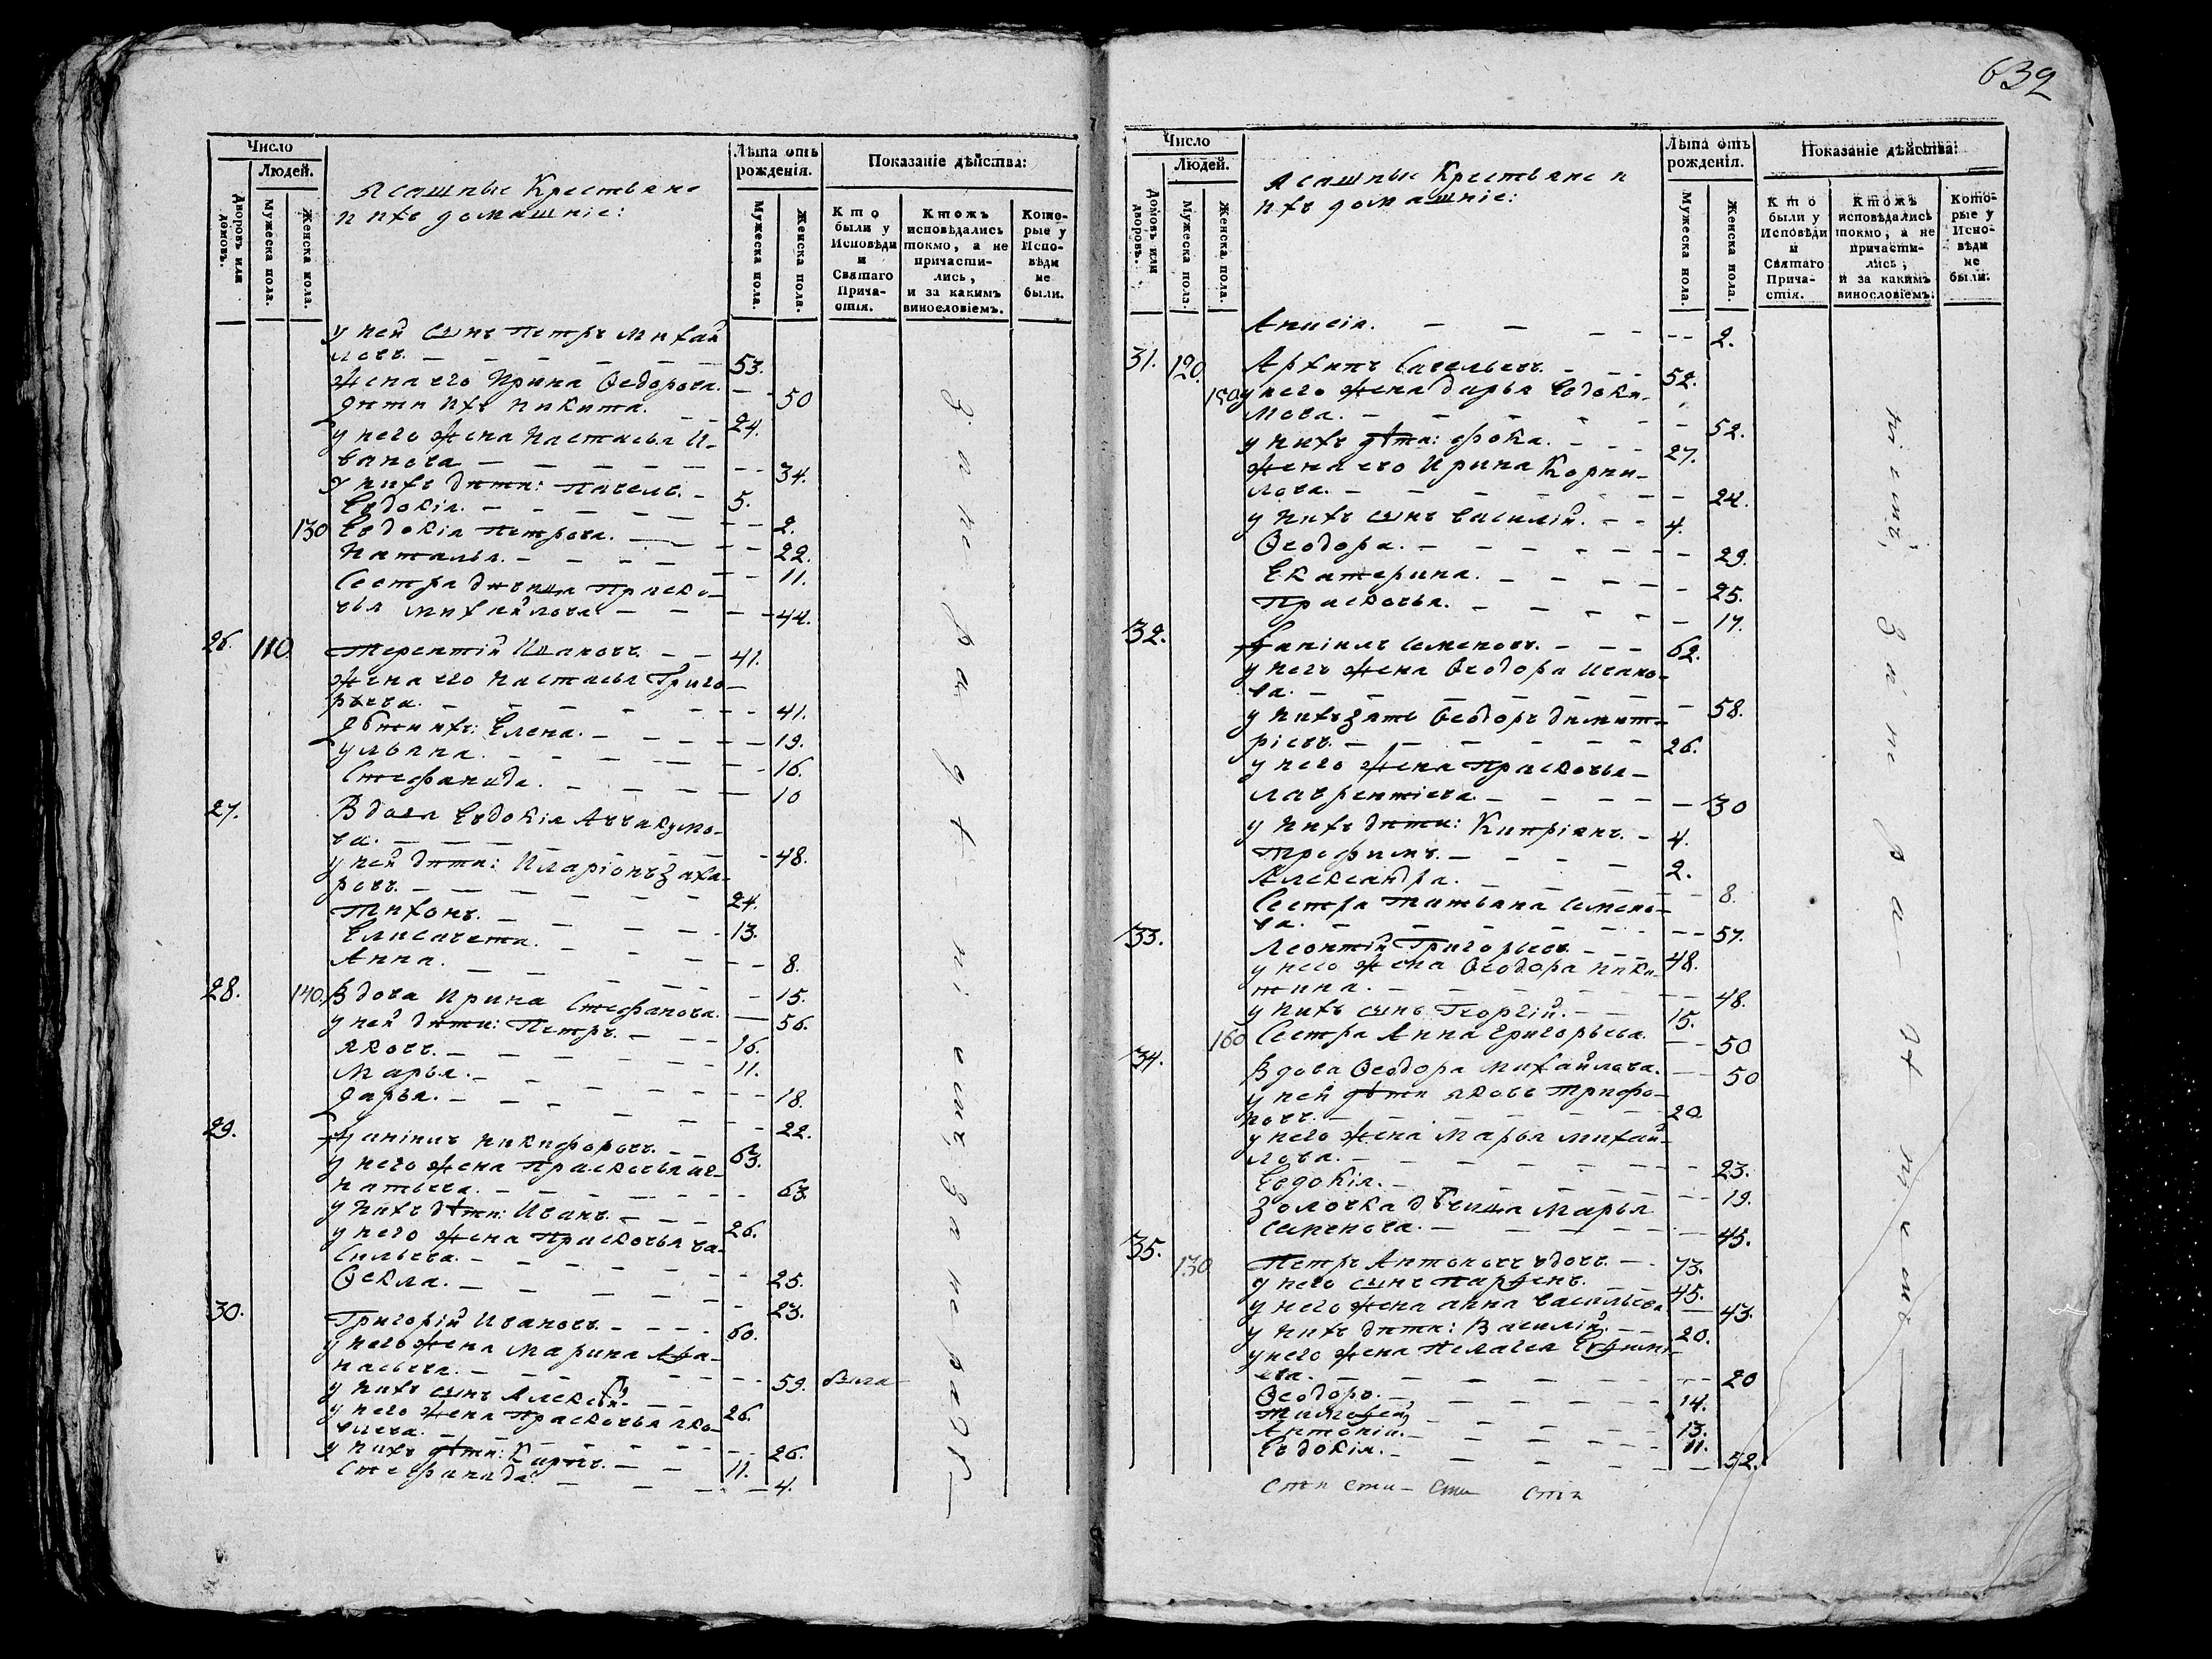 Число
Людей.
Дворовъ или домовъ.
Мужеска пола.
Женска пола.
Ясашные Крестьяне
и ихъ домашніе:
Лѣта отъ рожденія.
Мужеска пола.
Женска пола.
Показаніе дѣйства:
Кто были у Исповѣди и Святаго Прича-стія.
Ктожъ исповѣдались токмо, а не причасти-лись, и за какимъ винословіемъ.
Кото-рые у Испо-вѣди не были.
у ней сынъ Петръ Михай
ловъ. 53.
жена его Ирина Ѳедорова. 50
дѣти ихъ Никита. 24.
у него жена Настасья И-
ванова 34.
у нихъ дѣти: Павелъ. 5.
Евдокія. 2.
130 Евдокія Петрова. 22.
Наталья. 11.
Сестра дѣвица Праско-
вья Михайлова 44.
26. 110 Терентій Ивановъ. 41.
жена его Настасья Григо-
рьева. 41.
дѣти ихъ: Елена. 19.
Ульяна. 16.
Стефанида. 10
27. Вдова Евдокія Аввакумо-
ва. 48.
у ней дѣти: Иларіонъ Заха-
ровъ. 24.
Тихонъ. 13.
Елисавета. 8.
Анна. 15.
28. 140. Вдова Ирина Стефанова. 56.
у ней дѣти: Петръ. 16.
Яковъ. 11.
Марья. 18.
Дарья. 22.
29. Даніилъ Никифоровъ. 63.
у него жена Прасковья Иг-
натьева. 63.
у нихъ дѣти: Иванъ. 26.
у него жена Прасковья Ва-
сильева. 25.
Ѳекла. 23.
30. Григорій Ивановъ. 60.
у него жена Марина Аѳа-
насьева. 59. была
у нихъ сынъ Алексѣй. 26.
у него жена Прасковья Яко-
влева. 26.
у нихъ дѣти: Карпъ. 11.
Стефанида. 4.
за нерадѣніемъ, за нерадѣ
632
Число
Людей.
Домовъ или дворовъ.
Мужеска пола.
Женска пола.
Ясашные Крестьяне и
ихъ домашніе:
Лѣта отъ рожденія.
Мужеска пола.
Женска пола.
Показаніе дѣйства:
Кто были у Исповѣди и Святаго Прича-стія.
Ктожъ исповѣдались токмо, а не причасти-лись, и за какимъ винословіемъ.
Кото-рые у Испо-вѣди не были.
Анисія. 2.
31. 120. Архипъ Савельевъ. 52.
150 у него жена Дарья Евдоки-
мова. 52.
у нихъ дѣти: Фока. 27.
жена его Ирина Корни-
лова. 24.
у нихъ сынъ Василій. 4.
Ѳеодора. 29.
Екатерина. 25.
Прасковья. 17.
32. Даніилъ Семеновъ. 62.
у него жена Ѳеодора Ивано-
ва. 58.
у нихъ зять Ѳеодоръ Димит-
ріевъ. 26.
у него жена Прасковья
Лаврентіева 30
у нихъ дѣти: Кипріянъ. 4.
Трофимъ. 2.
Александра. 8.
Сестра Татьяна Семено-
ва. 57.
33. Леонтій Григорьевъ 48.
у него жена Ѳеодора Ники-
тина. 48.
у нихъ сынъ Георгій. 15.
160 Сестра Анна Григорьева. 50
34. Вдова Ѳеодора Михайлова. 50
у ней дѣти Яковъ Трифо-
новъ. 20.
у него жена Марья Михай-
лова. 23.
Евдокія. 19.
Золовка дѣвица Марья
Семенова. 45.
35. 130 Петръ Антоновъ вдовъ. 73.
у него сынъ Парѳенъ. 45.
у него жена Анна Васильева 43.
у нихъ дѣти: Василій. 20.
у него жена Пелагея Евѳимі-
ева. 20
Ѳеодоръ. 14.
Тимоѳей 13.
Антоній. 11.
Евдокія. 52.
ніемъ, за нерадѣніемъ